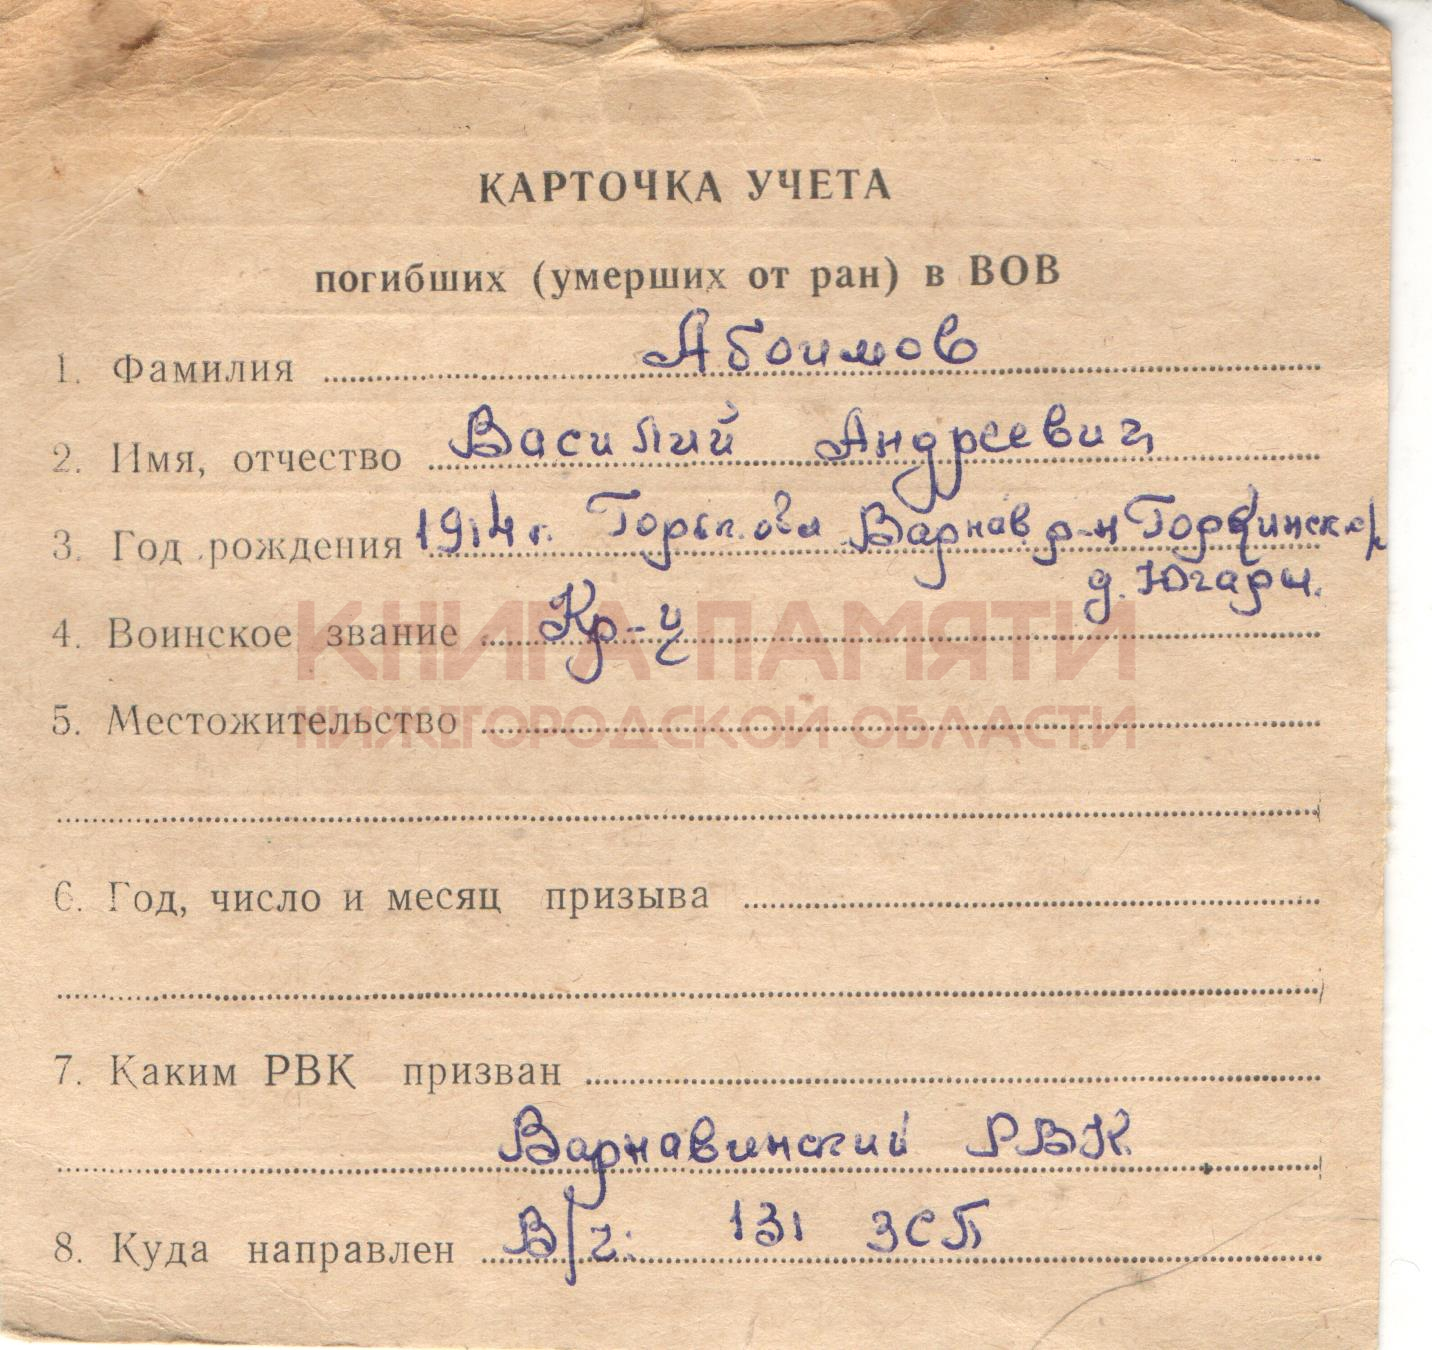 КАРТОЧКА УЧЕТА
погибших (умерших от ран) в ВОВ
1. Фамилия Абоимов
2. Имя, отчество Василий Андреевич
3. Год рождения 1914 г. Горьк. обл Варнав р-н
д. Югары.
4. Воинское звание Кр-ц
КНИГА ПАМЯТИ
5. Местожительство
НИЖЕГОРОДСКОЙ ОБЛАСТИ
6. Год, число и месяц призыва
7. Каким РВК призван
Варнавинский РВК
8. Куда направлен В/ч. 131 ЗСП